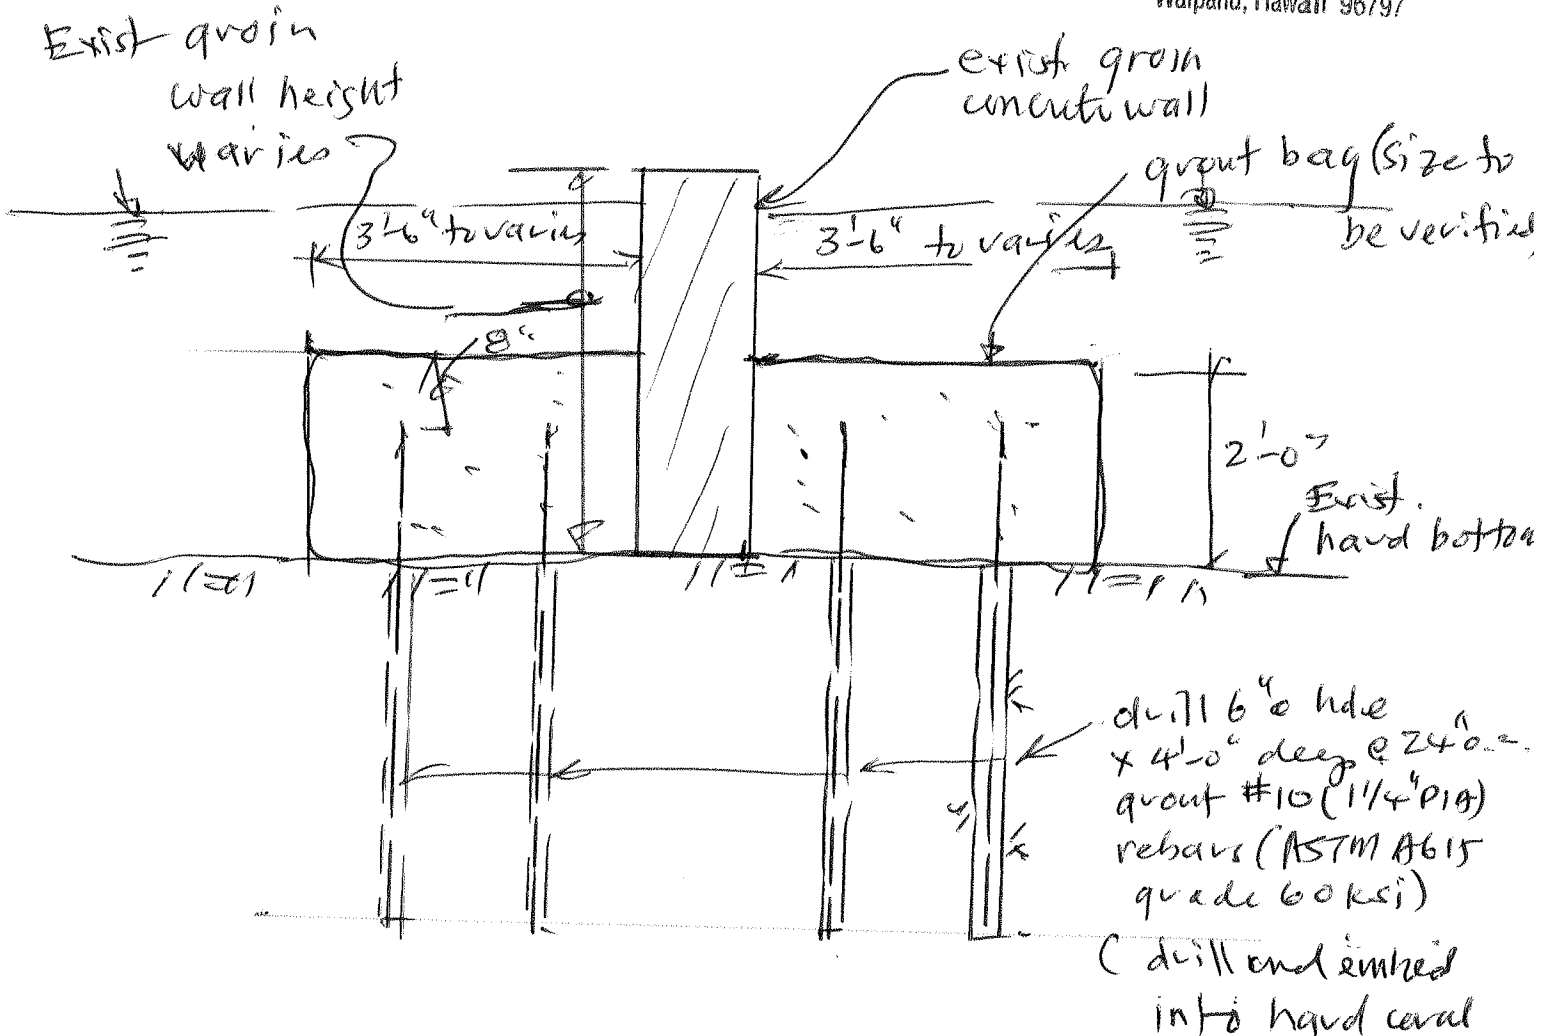 Waipahu, Hawaii 96797
Exist groin
wall height
varies
exist groin
concrete wall
grout bag (size to
be verified
3'-6" to varies
3'-6" to varies
8"
2'-0"
Exist.
hard bottom
drill 6"ø hole
x 4'-0" deep @ 24" o.c.
grout #10 (1 1/4" DIA)
rebars (ASTM A615
grade 60 ksi)
( drill and embed
into hard coral